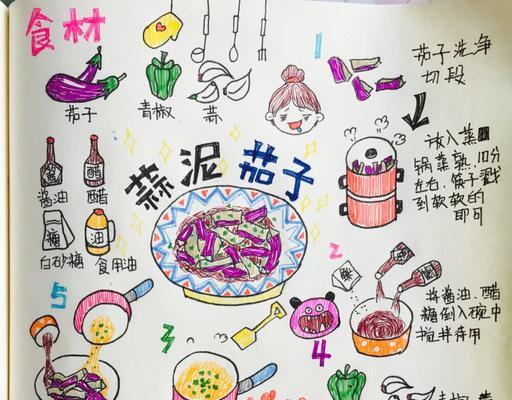 食材
茄子
青椒
蒜
酱油
醋
酱油
醋
糖
油
白砂糖
食用油
蒜泥茄子
1
茄子洗净
切段
放入蒸
锅蒸熟,10分
左右,筷子戳
到软软的
即可
2
将酱油、醋
糖倒入碗中
搅拌待用
3
4
5
青椒